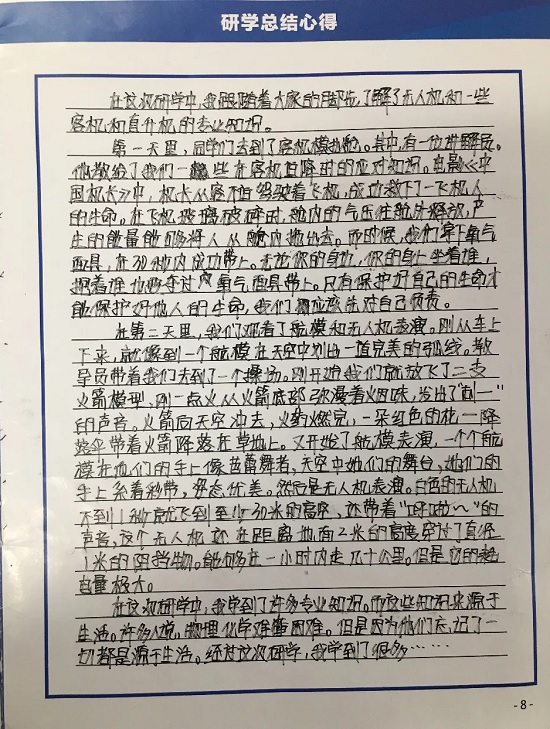 研学总结心得
在这次研学中,我跟随着大家的脚步,了解了无人机和一些
客机和直升机的专业知识。
第一天里,同学们去到了客机模拟舱。其中,有一位讲解员。
他教给了我们一些在客机直降时的应对知识。电影《中
国机长》中,机长从容不迫驾驶着飞机,成功救下了一飞机人
的生命。在飞机玻璃破碎时,舱内的气压往舱外释放,产
生的能量能够将人从舱内抛出去。而时候,我们拿下氧气
面具,在30秒内成功带上。无论你的身边,你的身上坐着谁,
抱着谁也要在过氧气面具带上。只有保护好自己的生命才
能保护好他人的生命,我们都应该先对自己负责。
在第二天里,我们观看了航模和无人机表演。刚从车上
下来,就像到一个航模在天空中划出一道完美的弧线。教
导员带着我们去到了一个操场。刚开始我们就放飞了二支
火箭模型,刚一点火从火箭底部弥漫着火的味,发出了"刺一"
的声音。火箭向天空冲去,火药燃完,一朵红色的花一降
落伞带着火箭降落在草地上。又开始了航模表演,一个个航
模在他们的手上像芭蕾舞者,天空中她们的舞台,她们的
手上系着彩带,姿态优美。然后是无人机表演。白色的无人机
不到1秒就飞到至少30米的高度,还带着"呼啦~~"的
声音,这个无人机还在距离地面2米的高度穿过了直径
1米的阴挡物。能够在一小时内走几十公里。但是它的耗
电量极大。
在这次研学中,我学到了许多专业知识。而这些知识来源于
生活。许多人说,物理化学难懂困难。但是因为他们忘记了一
切都是源于生活。经过这次研学,我学到了很多……
-8-